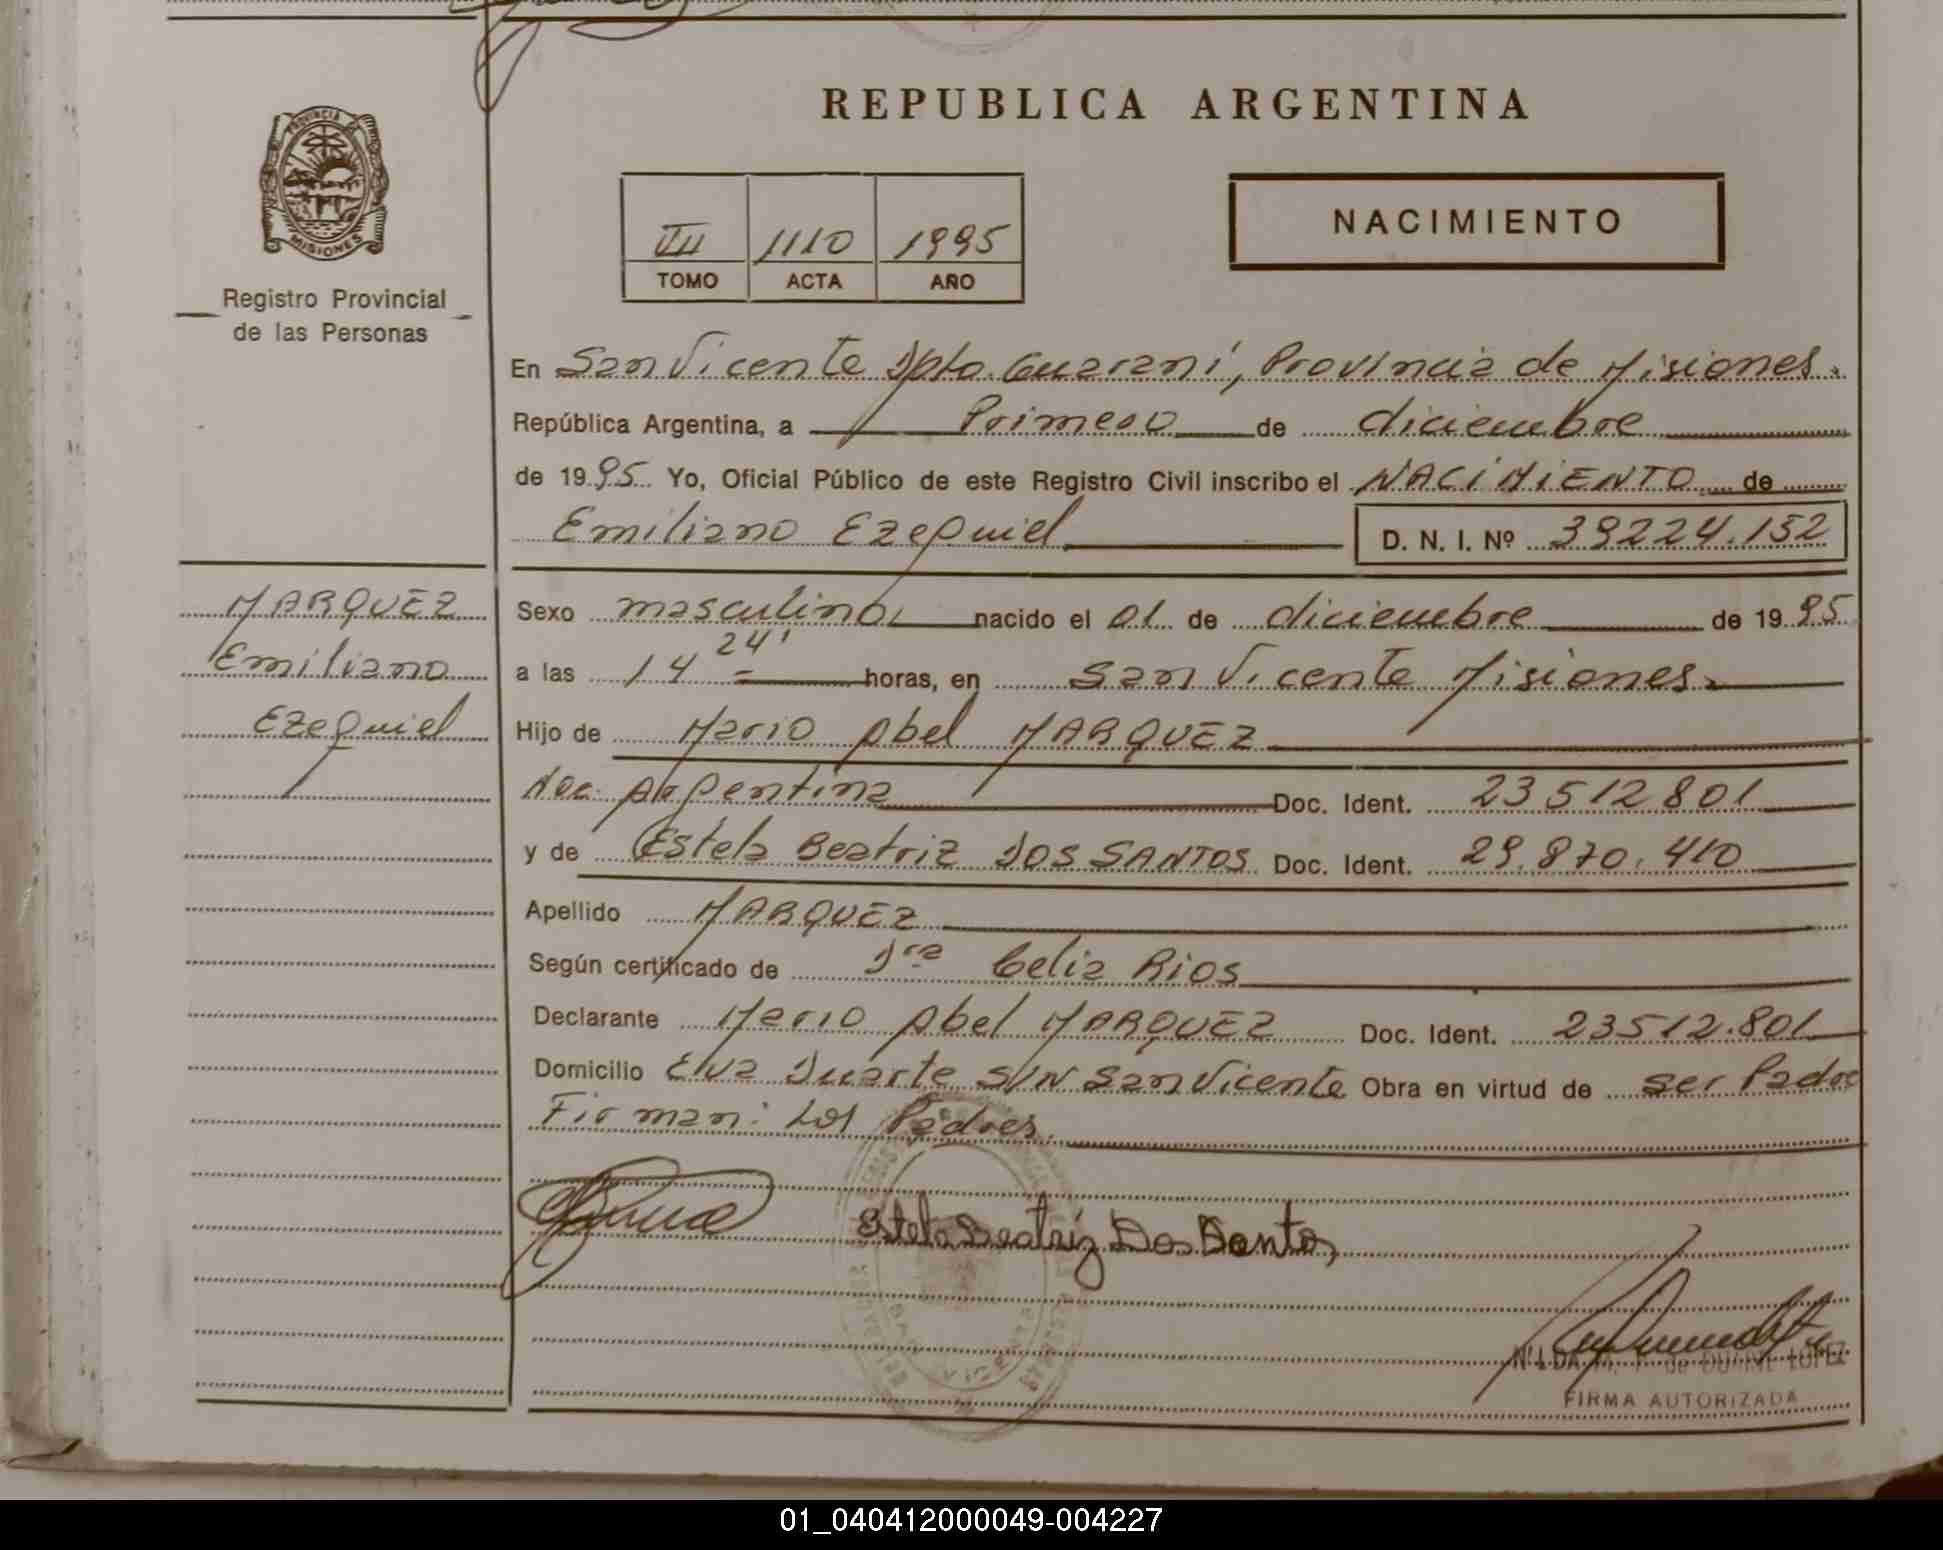 REPUBLICA ARGENTINA
PROVINCIA DE
MISIONES
Registro Provincial
de las Personas
1110 1995
TOMO ACTA AÑO
NACIMIENTO
En San Vicente Dpto. Guaraní, Provincia de Misiones.
República Argentina, a Primero de diciembre
de 1995 Yo, Oficial Público de este Registro Civil inscribo el NACIMIENTO de
Emiliano Ezequiel D. N. I. Nº 39224.152
MARQUEZ
Emiliano
Ezequiel
Sexo masculino nacido el 01 de diciembre de 1995
a las 14 24' horas, en San Vicente Misiones.
Hijo de Mario Abel MARQUEZ
Nac. Argentina Doc. Ident. 23512801
y de Estela Beatriz DOS SANTOS Doc. Ident. 29.870.410
Apellido MARQUEZ
Según certificado de Dra Celia Rios
Declarante Mario Abel MARQUEZ Doc. Ident. 23512.801
Domicilio Eva Duarte S/N San Vicente Obra en virtud de ser Padre
Firman: Los Padres.
Estela Beatriz Dos Santos
SAN VICENTE
LOPEZ
FIRMA AUTORIZADA
01_040412000049-004227